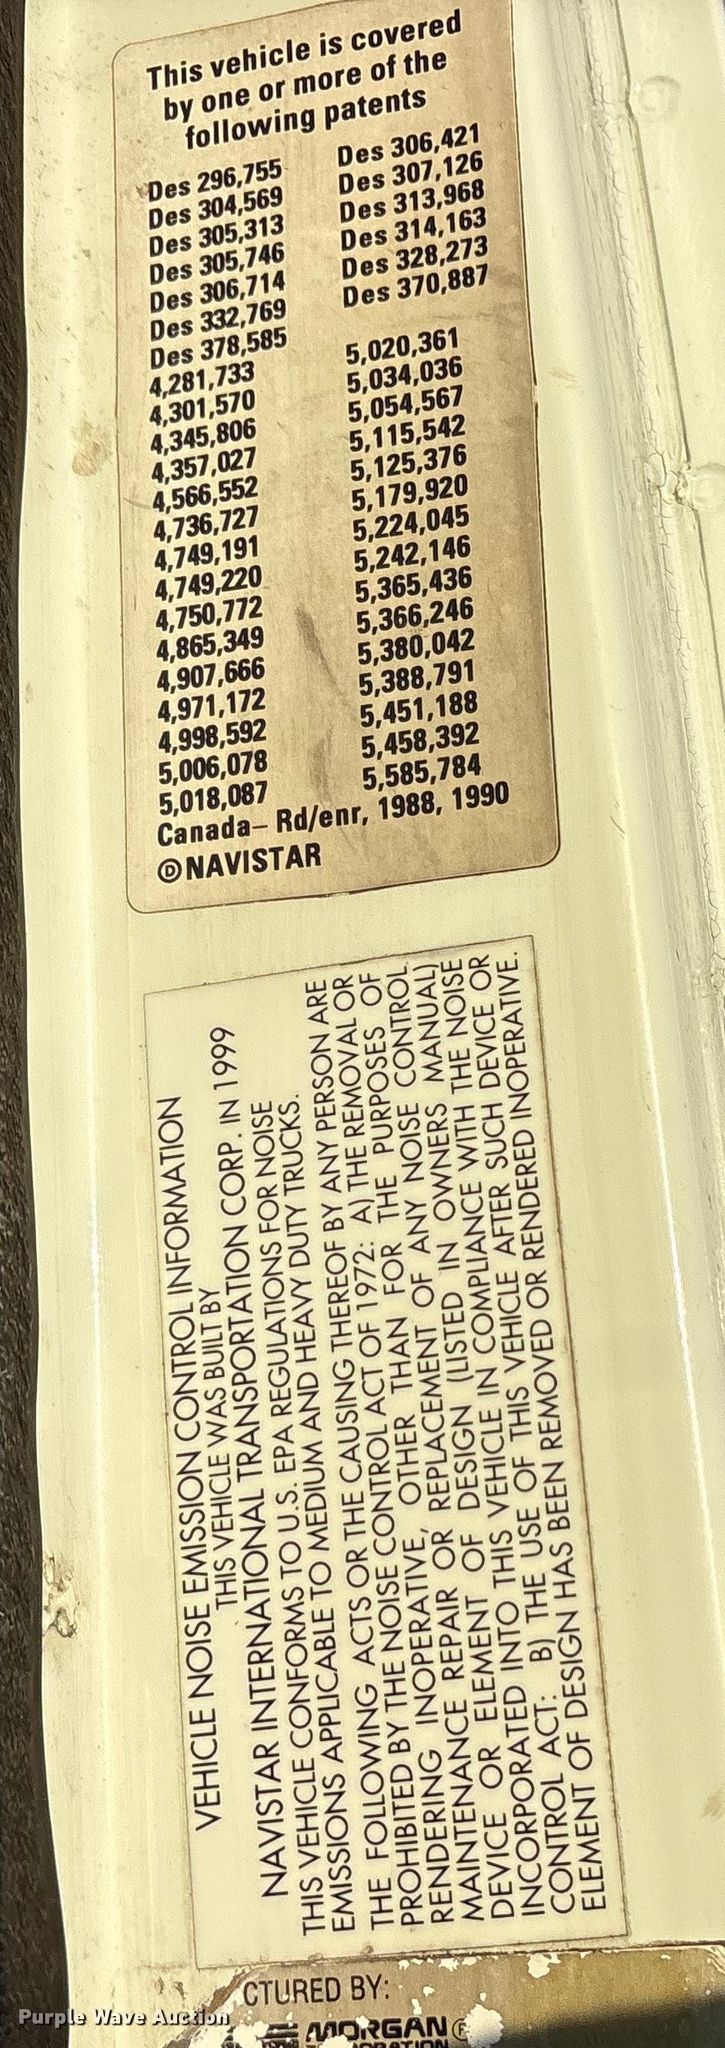 This vehicle is covered
by one or more of the
following patents
Des 296,755
Des 304,569
Des 305,313
Des 305,746
Des 306,714
Des 332,769
Des 378,585
4,281,733
4,301,570
4,345,806
4,357,027
4,566,552
4,736,727
4,749,191
4,749,220
4,750,772
4,865,349
4,907,666
4,971,172
4,998,592
5,006,078
5,018,087
Des 306,421
Des 307,126
Des 313,968
Des 314,163
Des 328,273
Des 370,887
5,020,361
5,034,036
5,054,567
5,115,542
5,125,376
5,179,920
5,224,045
5,242,146
5,365,436
5,366,246
5,380,042
5,388,791
5,451,188
5,458,392
5,585,784
Canada– Rd/enr, 1988, 1990
Ⓓ NAVISTAR
VEHICLE NOISE EMISSION CONTROL INFORMATION
THIS VEHICLE WAS BUILT BY
NAVISTAR INTERNATIONAL TRANSPORTATION CORP. IN 1999
THIS VEHICLE CONFORMS TO U.S. EPA REGULATIONS FOR NOISE
EMISSIONS APPLICABLE TO MEDIUM AND HEAVY DUTY TRUCKS.
THE FOLLOWING ACTS OR THE CAUSING THEREOF BY ANY PERSON ARE
PROHIBITED BY THE NOISE CONTROL ACT OF 1972: A) THE REMOVAL OR
RENDERING INOPERATIVE, OTHER THAN FOR THE PURPOSES OF
MAINTENANCE REPAIR OR REPLACEMENT OF ANY NOISE CONTROL
DEVICE OR ELEMENT OF DESIGN (LISTED IN OWNERS MANUAL)
INCORPORATED INTO THIS VEHICLE IN COMPLIANCE WITH THE NOISE
CONTROL ACT: B) THE USE OF THIS VEHICLE AFTER SUCH DEVICE OR
ELEMENT OF DESIGN HAS BEEN REMOVED OR RENDERED INOPERATIVE.
CTURED BY:
MORGAN
Purple Wave Auction